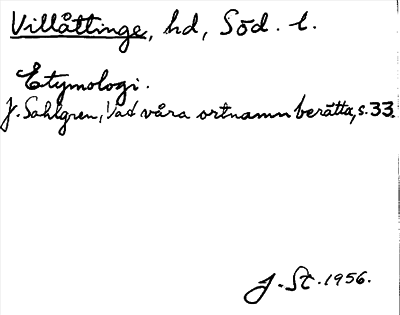 Villåttinge, hd, Söd. l.
Etymologi.
J. Sahlgren, Vad våra ortnamn berätta, s. 33.
J. St. 1956.